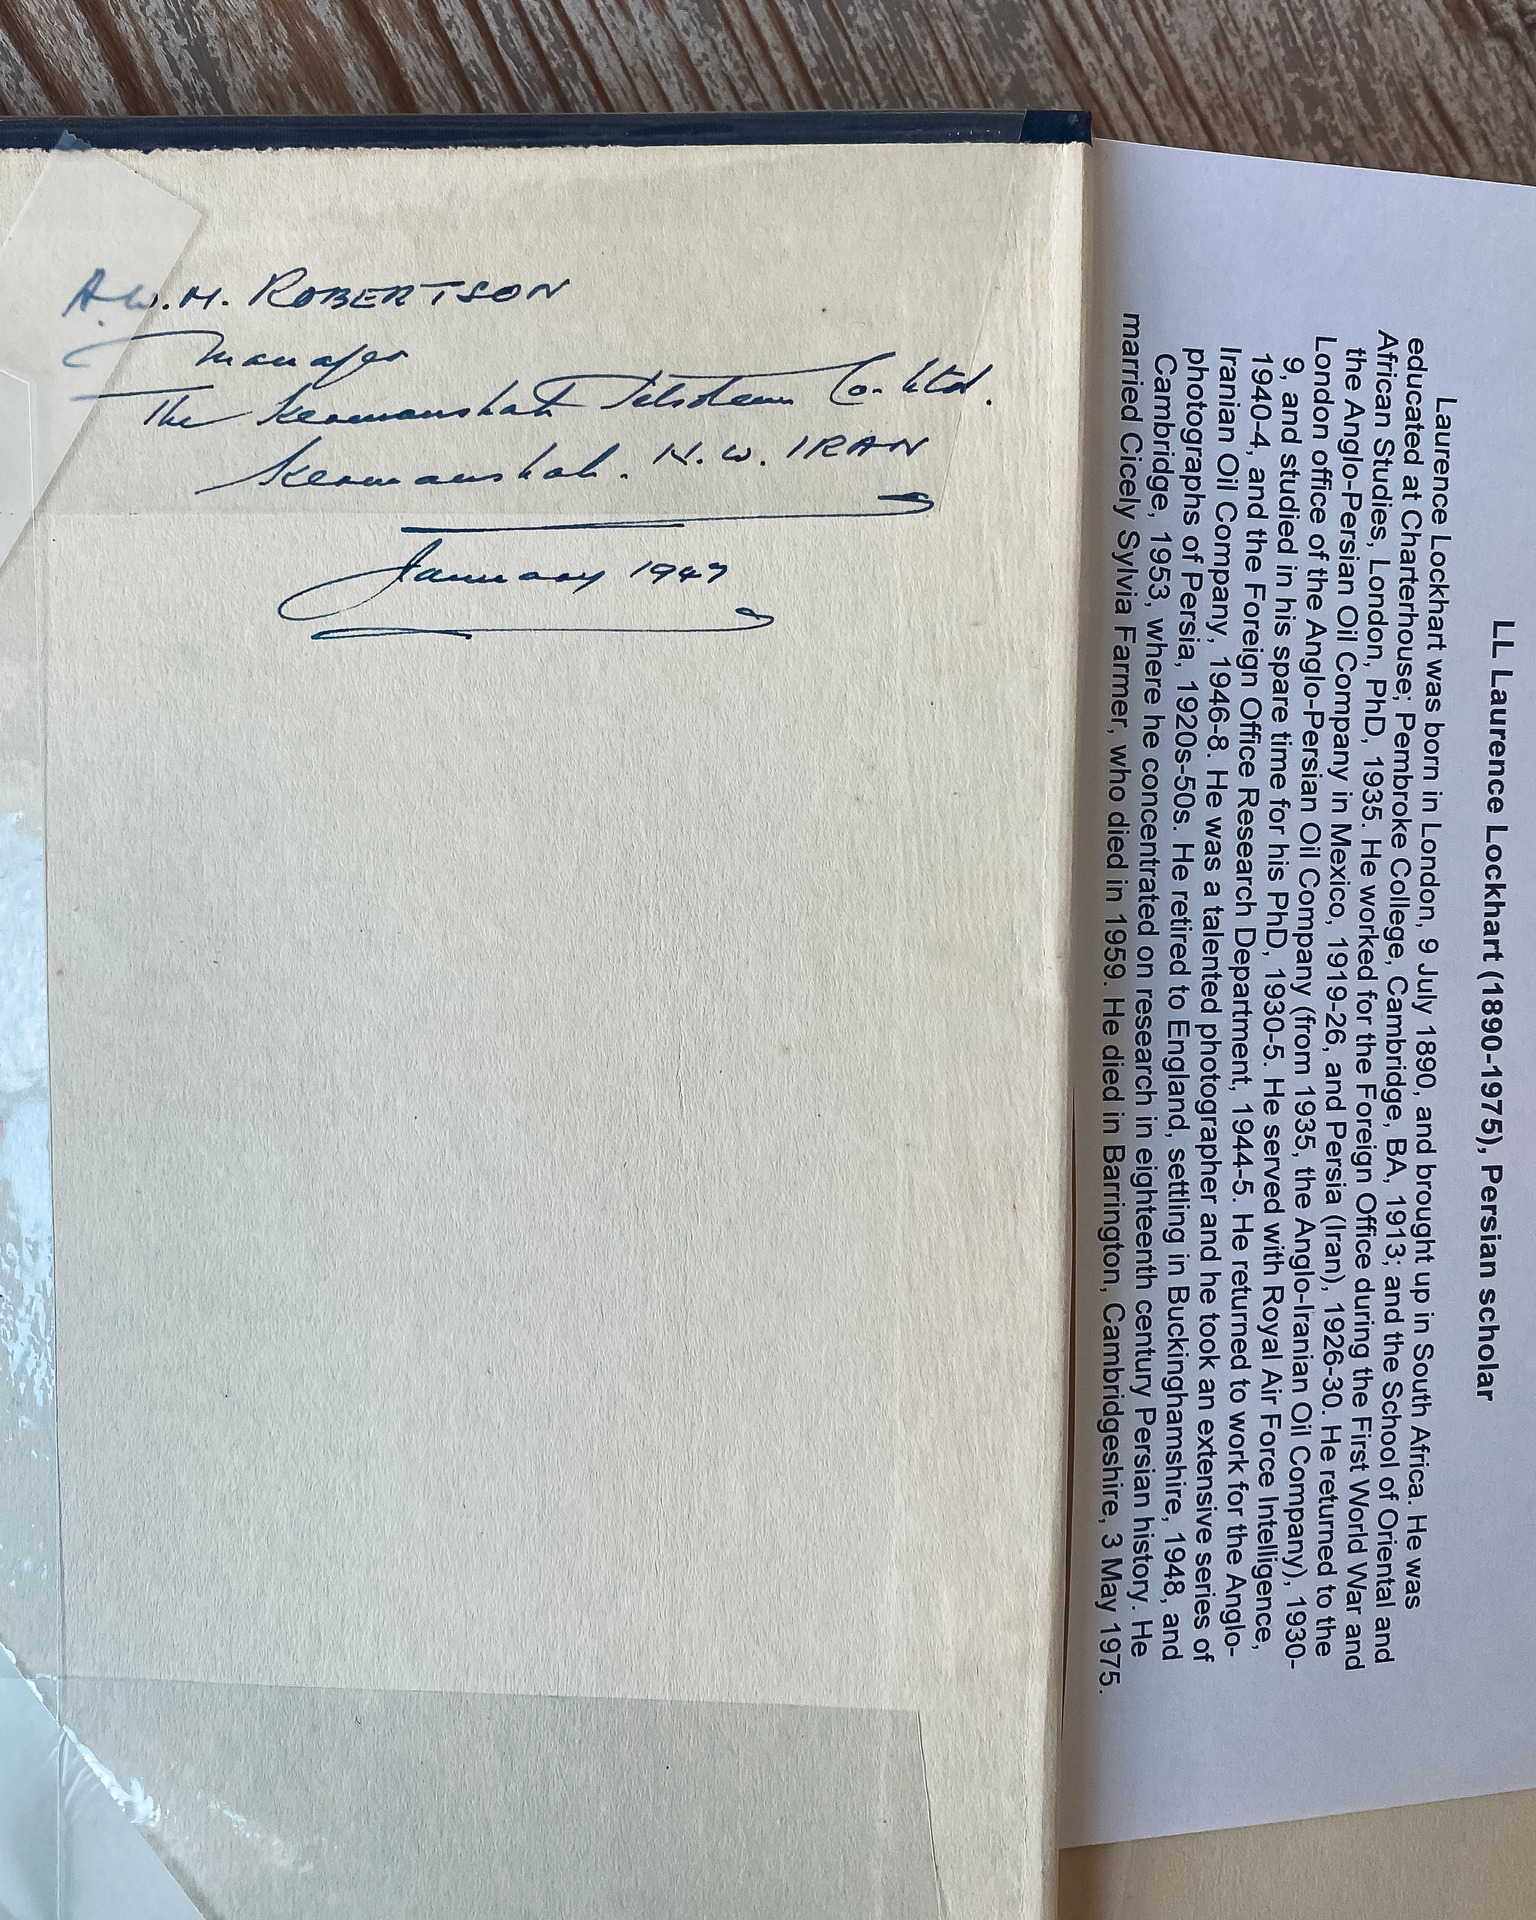 A.W.M. ROBERTSON
Manager
The Kermanshah Petroleum Co. Ltd.
Kermanshah. N.W. IRAN
January 1947
LL Laurence Lockhart (1890-1975), Persian scholar
Laurence Lockhart was born in London, 9 July 1890, and brought up in South Africa. He was
educated at Charterhouse; Pembroke College, Cambridge, BA, 1913; and the School of Oriental and
African Studies, London, PhD, 1935. He worked for the Foreign Office during the First World War and
the Anglo-Persian Oil Company in Mexico, 1919-26, and Persia (Iran), 1926-30. He returned to the
London office of the Anglo-Persian Oil Company (from 1935, the Anglo-Iranian Oil Company), 1930-
9, and studied in his spare time for his PhD, 1930-5. He served with Royal Air Force Intelligence,
1940-4, and the Foreign Office Research Department, 1944-5. He returned to work for the Anglo-
Iranian Oil Company, 1946-8. He was a talented photographer and he took an extensive series of
photographs of Persia, 1920s-50s. He retired to England, settling in Buckinghamshire, 1948, and
Cambridge, 1953, where he concentrated on research in eighteenth century Persian history. He
married Cicely Sylvia Farmer, who died in 1959. He died in Barrington, Cambridgeshire, 3 May 1975.